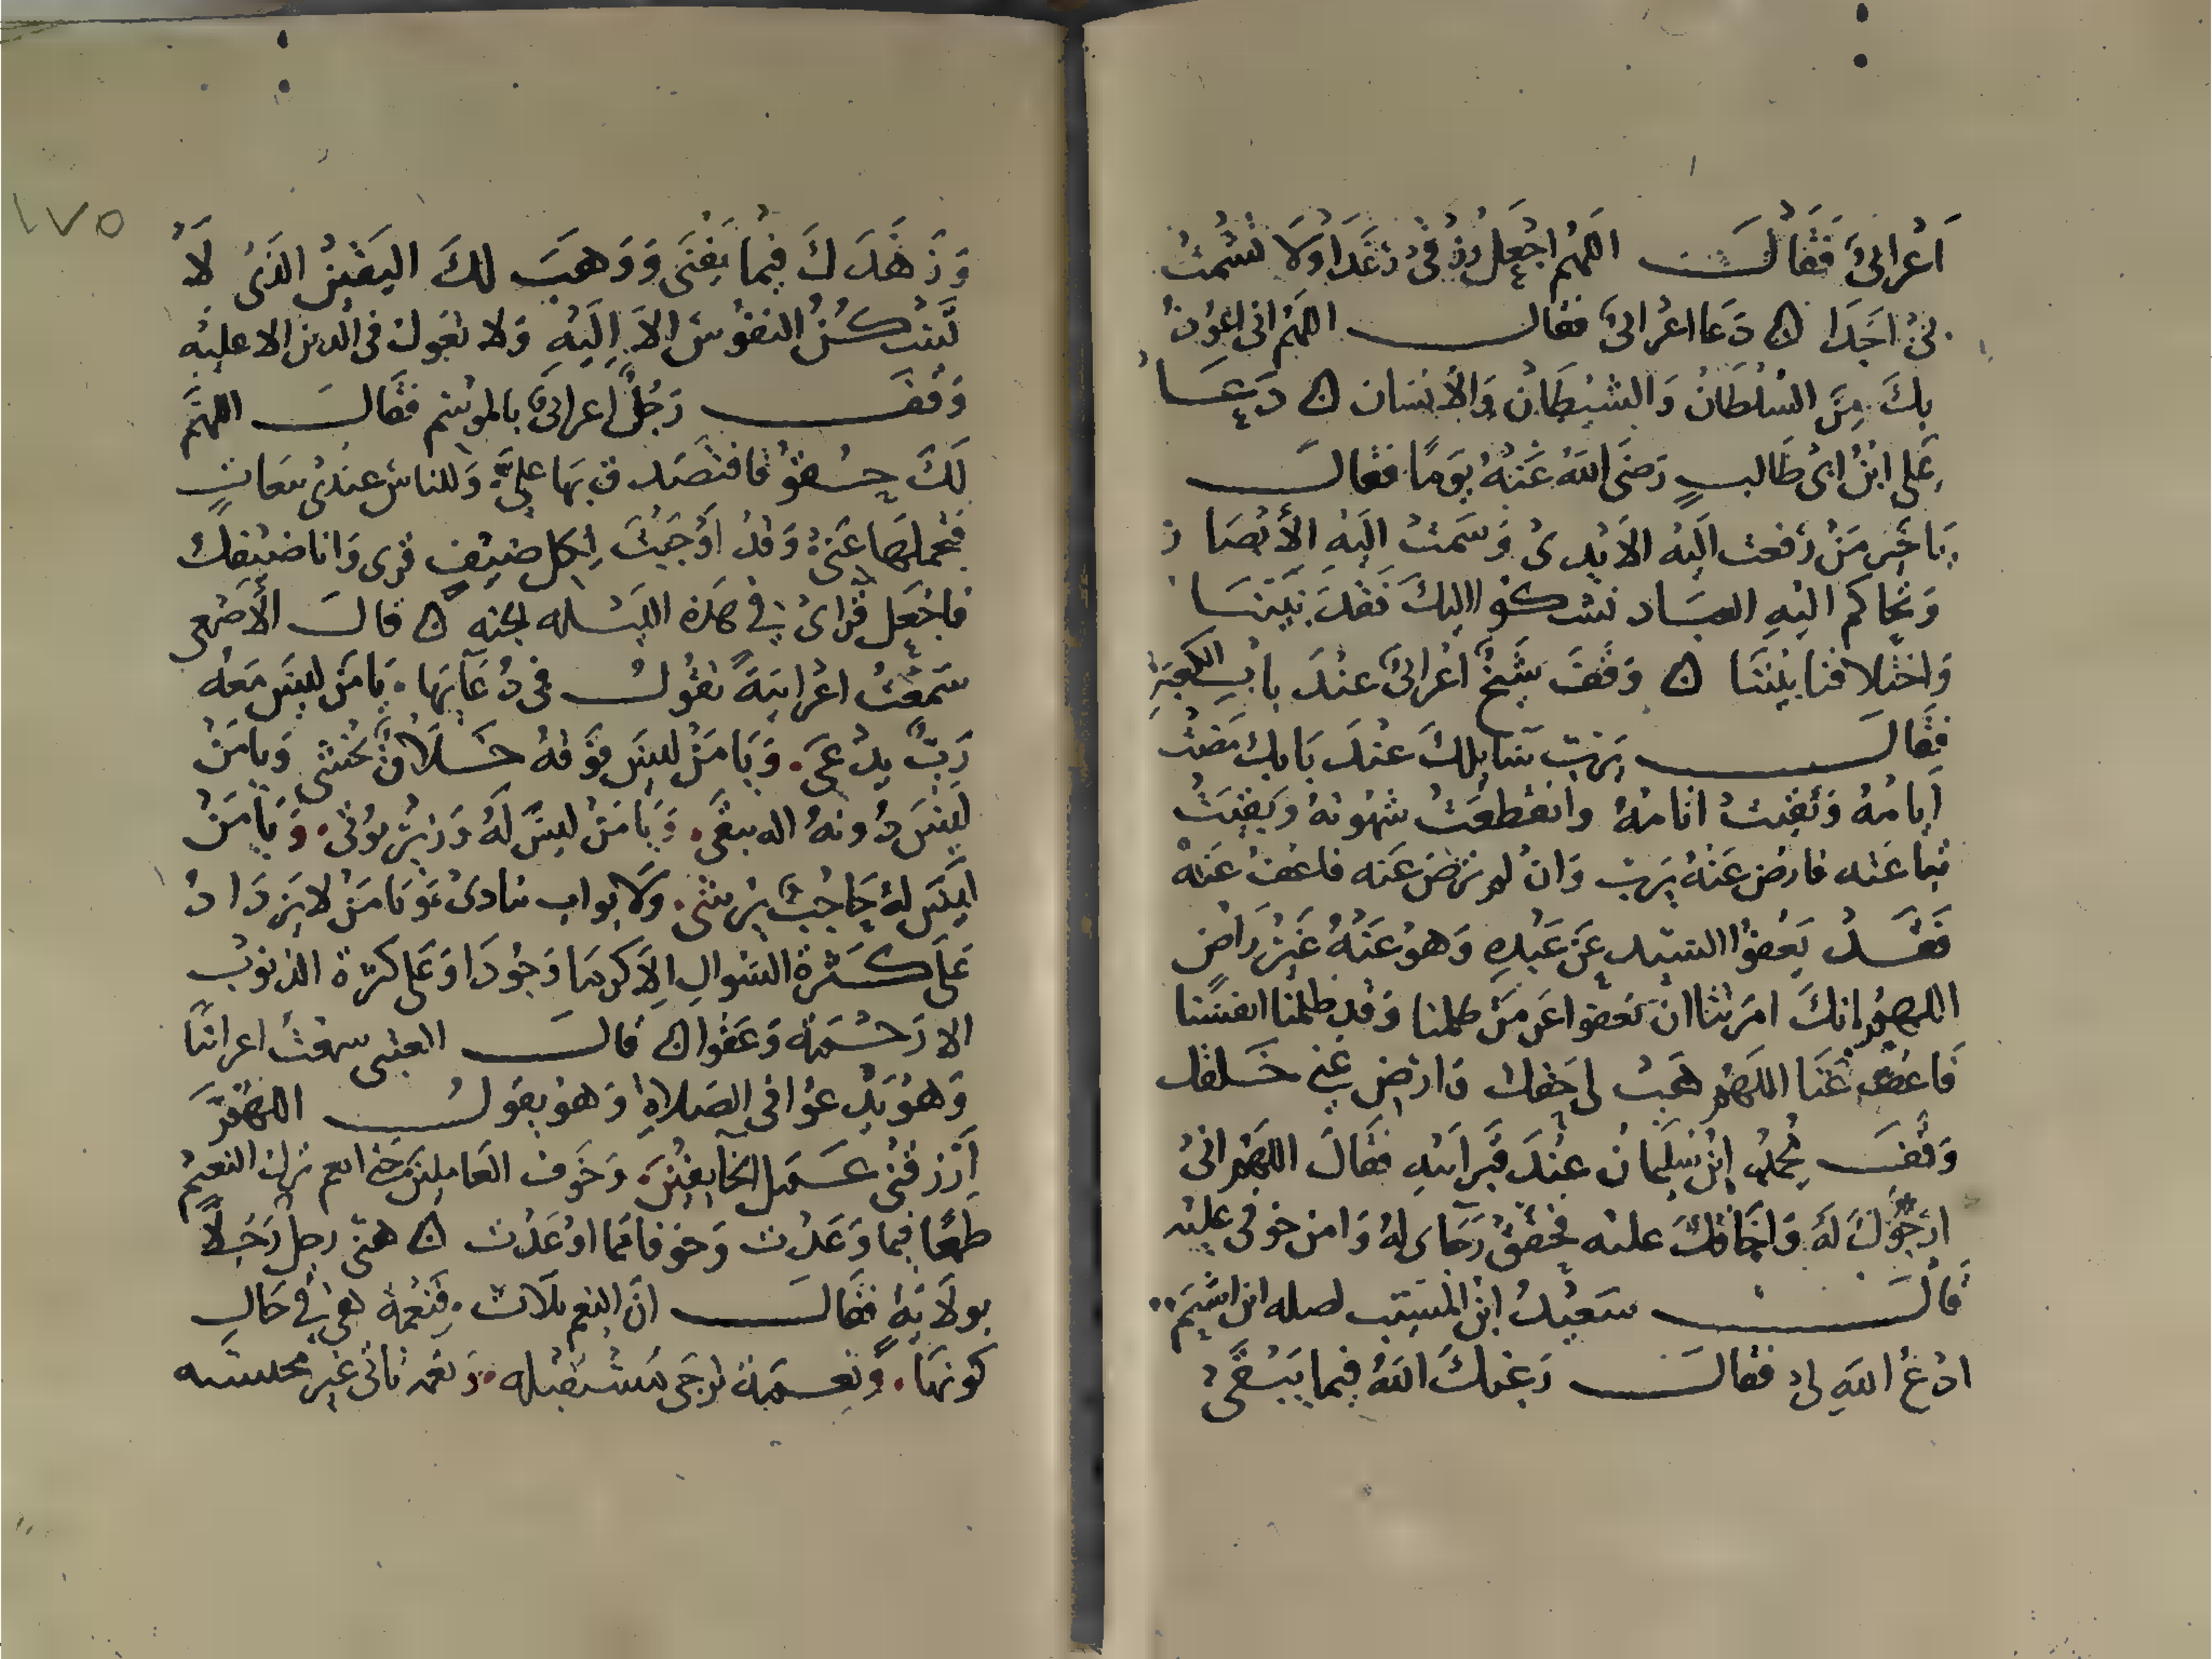 اَعْرابىٌّ فَقَالَت اللهُم اجْعَل رزقى رَغَدًا ولَا تشمت
بىْ احَدًا ۞ دَعا اعْرابىٌ فقال اللهُم انى اعُوذُ
بكَ مِنَ السُلطَانُ وَالشيطَانْ وَالأنسَان ۞ دَعَا
عَلى ابْنُ ابىْ طَالبٍ رَضىَ اللهُ عَنْهُ يومًا فقالَ
يَا خَير مَنْ رُفعت اليْهُ الاَيدىْ وَسَمتْ اليْهِ الأبْصَار
وَتحاكم اليْهِ العبَاد نشكُوا اليكَ فَقدَ نبيّنَا
وَاخْتلافنَا بيْننَا ۞ وَقَفَ شَيخٌ اعْرابىٌ عنْدَ بابِ الكعْبَةِ
فقَالَ يَرَبّ سَايلكَ عندَ بَابك مَضتْ
اَيامُهُ وَبَقيت اثامُهُ وانقطعَتْ شهْوتهُ وَبقيَتْ
تباعَته فارضْ عَنْهُ يَربّ وَانْ لم ترْضَ عَنه فاعْفُ عَنْهُ
فقَدْ يَعْفوُا السَيّد عَنْ عَبْدِهِ وَهوُ عَنْهُ غيْرُ رَاضٍ
اللهمُ انكَ امَرتنَا انْ نَعفوا عَن مَن ظلمنا وَقد ظلمْنا انفسَنا
فَاعْفُ عَنَا اللهُم هَبْ لى حَقك وَارْض عَنى خَلقك
وَقَفَ مُحمدُ ابْنُ سُلَيمانْ عِنْدَ قبْر ابنهِ فقَالَ اللهُم انىْ
ارْجُوكَ لَهُ وَاخَافكَ عليْه فحَققْ رَجَاى لهُ وَامن خوفى عليْه
قالَ سَعيْدُ ابْن المُسَيّب لصله ابن اشيَم
ادْعُ اللهِ لىْ فقالَ رَغبكَ اللهُ فيما يَبْقى
وَزَهّدَكَ فيْما يَفْنَى وَوَهَبَ لكَ اليَقيْنُ الذَىْ لَا
تَسْكُنُ النفوُسَ الاَّ اِليْهِ وَلا نعَول فى الدين الا عليْه
وَقفَ رَجُلٌ اعرابىٌ بالموْسم فقَالَ اللهمَّ
لَكَ حقوُقْا فتصَدق بهَا علىَّ وَللناس عندىْ تبعَاتٍ
فتحملهَا عَنىْ وَقدْ اَوْجَبْتَ لِكل ضيْف قرى وَانا ضيْفك
فاجْعَل قرَاىْ فى هَذه الليْله الجنه ۞ قالَ الأَصْمعى
سَمعْتُ اعْرابيَةً تقوُلُ فى دُعَايهَا. يَا مَن ليْسَ مَعهُ
رَبٌ يدْعَى. وَيَا مَنْ ليْسَ فوَقهُ خَلاقٌ يخْشى وَيا مَنْ
ليْسَ دُونهُ اله يبقَى. وَيَا مَنْ ليسَ لَهُ وَزيْرٌ يوُتى. وَيَا مَنْ
ليَسَ لهُ حَاجبٌ يرْشى. وَلَا بواب ينادىْ وَيَا مَنْ لا يَزدَادُ
عَلَى كَثرة السُوالِ الاَّ كرمًا وَجُودًا وَعَلى كثرة الذنوُب
الا رَحْمَة وَعَفوا ۞ قالَ العتبى سمعْتُ اعرابيًا
وَهوُ يَدْعوُا فى الصَلاةِ وَهوُ يقوَلُ اللهُمَّ
ارْزقنىْ عَمَل الخَايفيْنَ. وَخَوف العَاملينَ حَتى انعم بترك النعيْمُ
طمعًا فيما وَعَدْت وَخوفا مما اوْعَدْت ۞ هَنى رجل رَجُلاً
بولايَةٍ فقَالَ انَّ النعم ثلاث. فنَعْمة هى فى حَالِ
كونهَا. وَنعمَة ترجَى مُسْتقبْله. وَنعمه تاتى غير محتسَبه
١٧٥